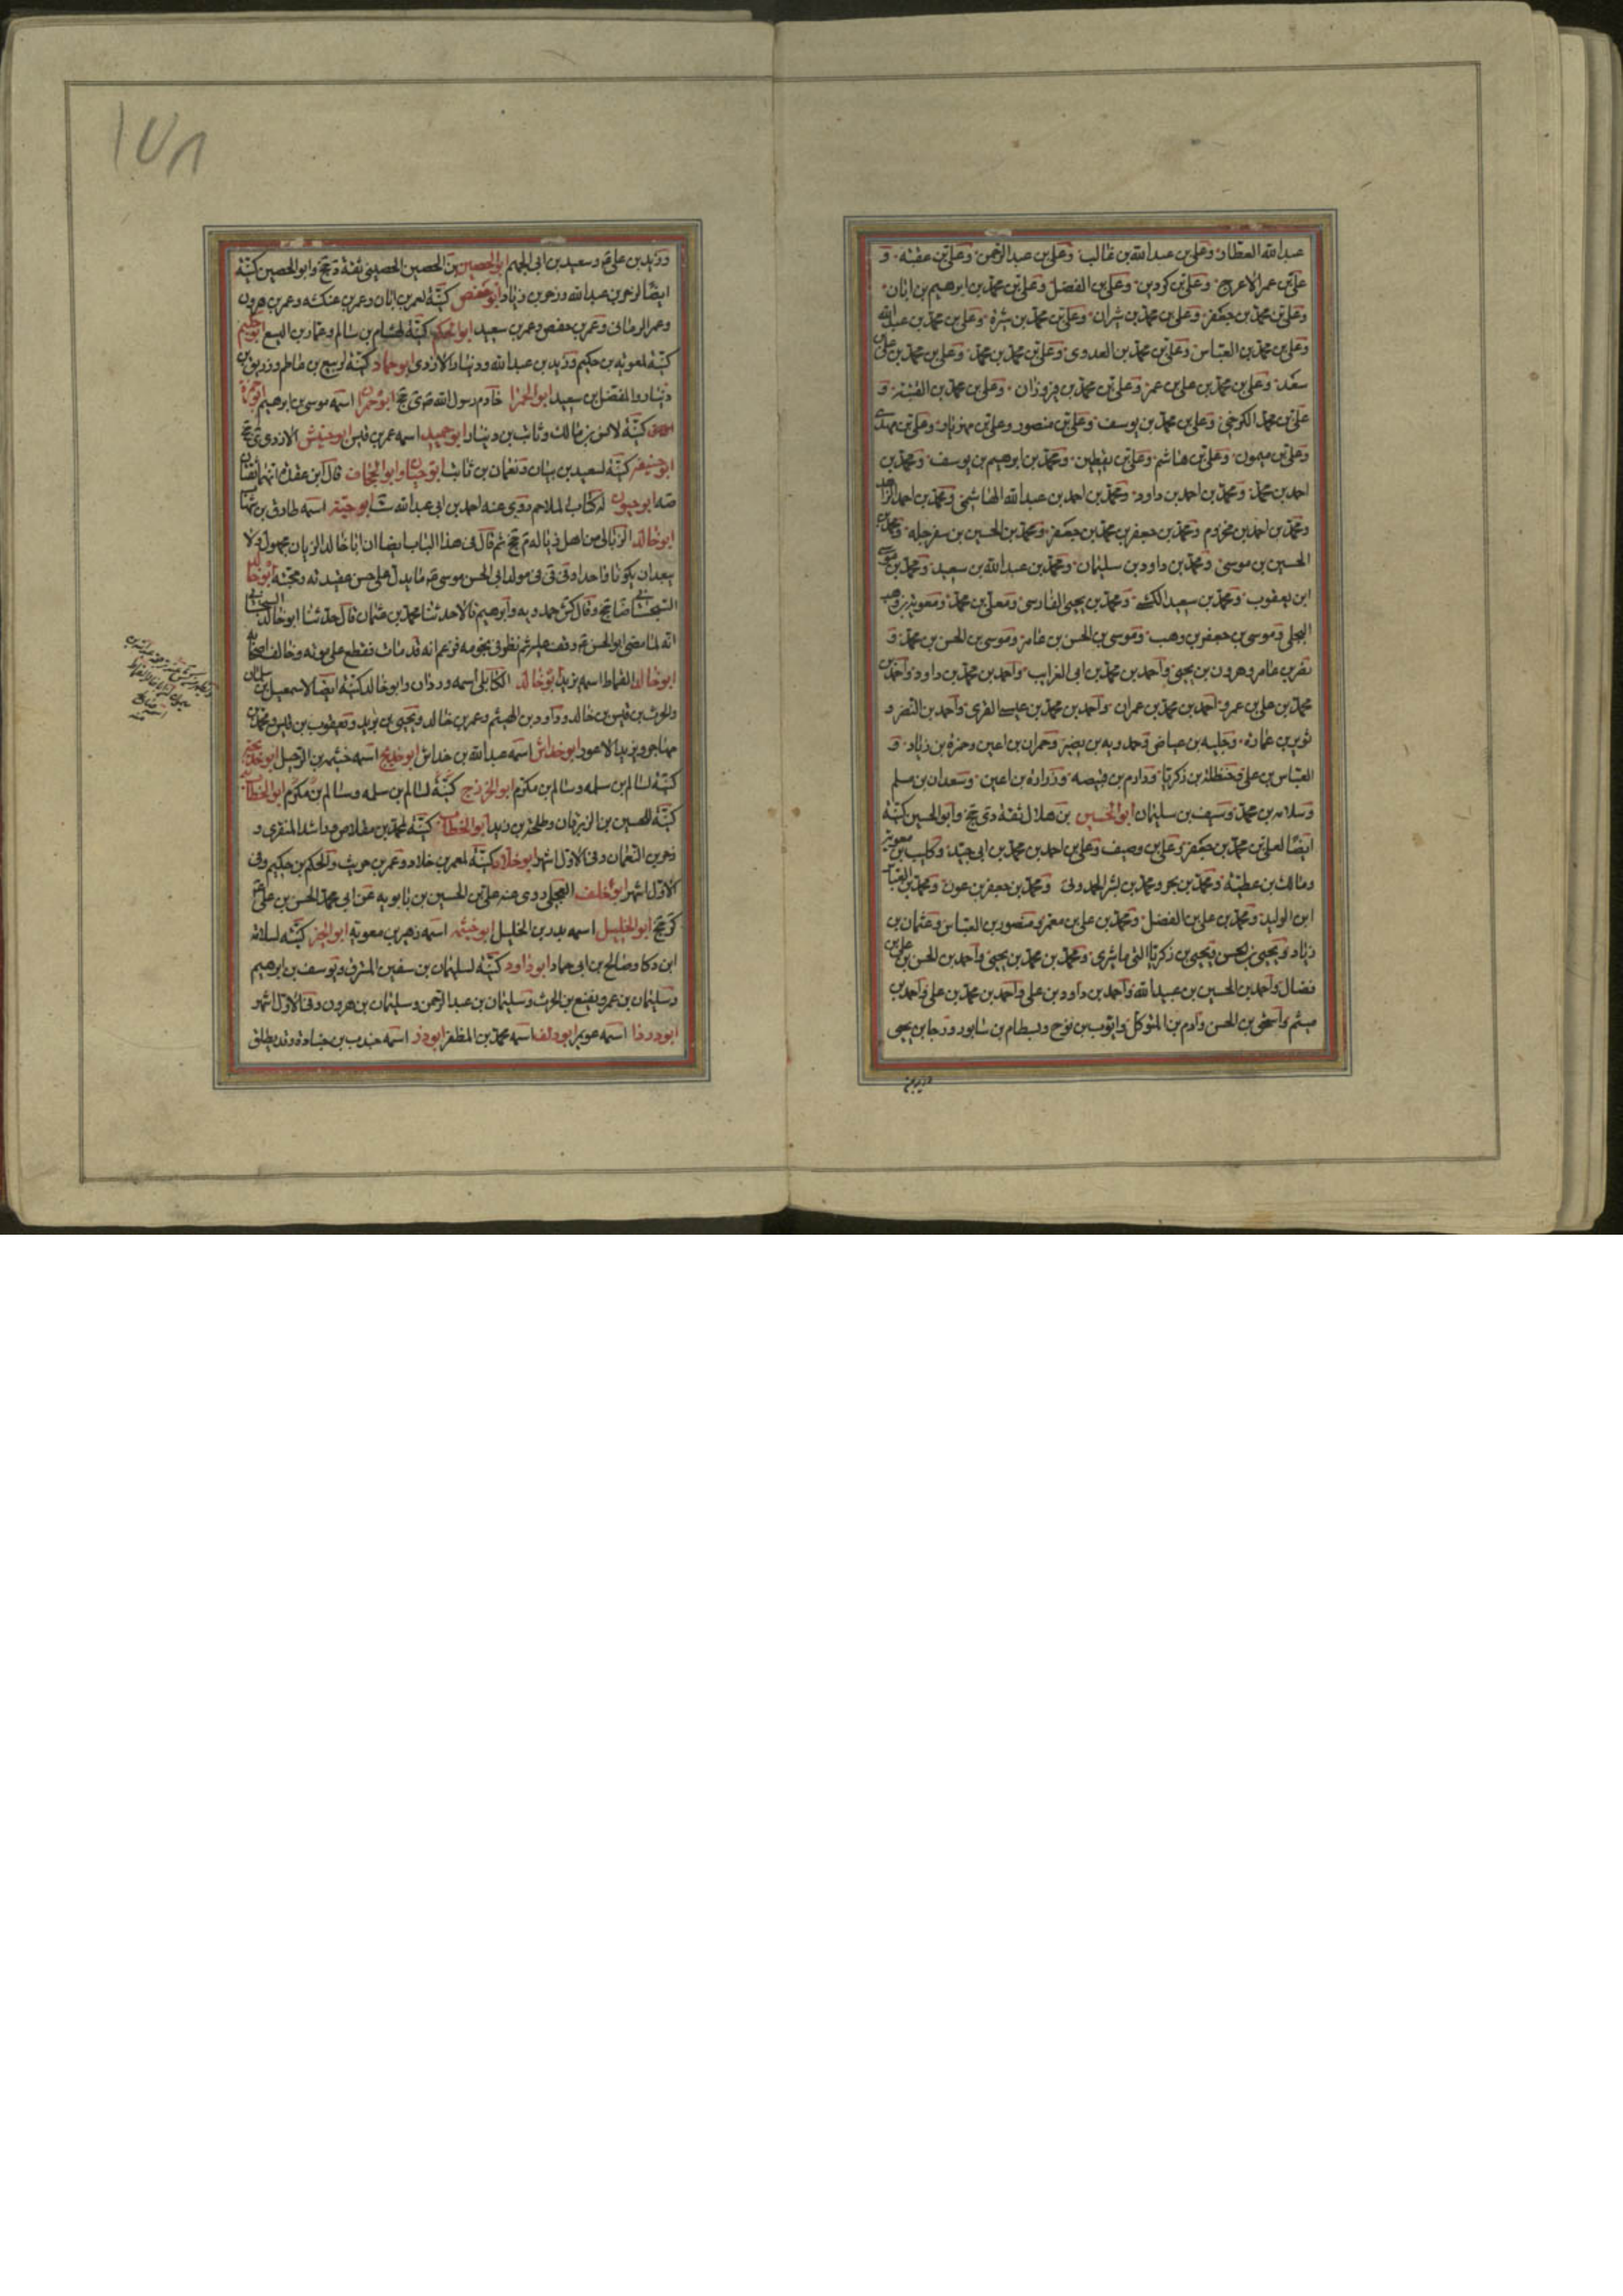 عبدالله العطار وعلي بن عبدالله بن غالب وعلي بن عبدالرحمن وعلي بن عقبه و
علي بن عمر الاعرج وعلي بن كردين وعلي بن الفضل وعلي بن محمد بن ابرهيم بن ابان
وعلي بن محمد بن جعفر وعلي بن محمد بن شيران وعلي بن محمد بن شيره وعلي بن محمد بن عبدالله
وعلي بن محمد بن العباس وعلي بن محمد بن العدوى وعلي بن محمد بن محمد وعلي بن محمد بن علي بن
سعد وعلي بن محمد بن علي بن عمر وعلي بن محمد بن فيروزان وعلي بن محمد بن القتيبه و
علي بن محمد الكرخي وعلي بن محمد بن يوسف وعلي بن منصور وعلي بن مهزيار وعلي بن مهدى
وعلي بن ميمون وعلي بن هاشم وعلي بن يقطين ومحمد بن ابرهيم بن يوسف ومحمد بن
احمد بن محمد ومحمد بن احمد بن داود ومحمد بن احمد بن عبدالله الهاشمي ومحمد بن احمد
ومحمد بن احمد بن مخزوم ومحمد بن جعفر بن محمد بن جعفر ومحمد بن الحسين بن سفرجله ومحمد بن
الحسين بن موسى ومحمد بن داود بن سليمان ومحمد بن عبدالله بن سعيد ومحمد بن موسى
ابن يعقوب ومحمد بن سعيد الكشي ومحمد بن يحيى الفارسى ومعلى بن محمد ومعويه بن وهب
البجلي وموسى بن جعفر بن وهب وموسى بن الحسن بن عامر وموسى بن الحسن بن محمد و
نصر بن عامر وهرون بن يحيى واحمد بن محمد بن ابي الغرايب واحمد بن محمد بن داود واحمد بن
محمد بن علي بن عمر واحمد بن محمد بن عمران واحمد بن محمد بن عيسى القرى واحمد بن النضر و
ثوير بن عماره وجلبه بن عياض وحمدويه بن نصير وحمران بن اعين وحمزه بن زياد و
العباس بن علي وحنظله بن زكريا ودارم بن قبيصه وزراره بن اعين وسعدان بن مسلم
وسلامه بن محمد وسيف بن سليمان ابو الحسين بن هلال ثقة دى جخ وابو الحسين كنية
ايضا لعلي بن محمد بن جعفر وعلي بن وصيف وعلي بن احمد بن محمد بن ابي جيد وكليب بن معويه
ومالك بن عطيه ومحمد بن بحر ومحمد بن بشر الحمدونى ومحمد بن جعفر بن عون ومحمد بن العباس
ابن الوليد ومحمد بن علي بن الفضل ومحمد بن علي بن معمر ومنصور بن العباس وعثمان بن
زياد ويحيى بن الحسن ويحيى بن زكريا النرماشيرى ومحمد بن محمد بن يحيى واحمد بن الحسن بن علي بن
فضال واحمد بن الحسين بن عبيدالله واحمد بن داود بن علي واحمد بن محمد بن علي واحمد بن
ميثم واسحق بن الحسن وادم بن المتوكل وايوب بن نوح وبسطام بن شابور ورجا بن يحيى
وزيد بن
١٥٨
وزيد بن علي ع وسعيد بن ابي الجهم ابو الحصين بن الحصين الحصينى ثقة دى جخ وابو الحصين كنية
ايضا لزحر بن عبدالله وزحر بن زياد ابو حفص كنية لعمر بن ابان وعمر بن عنكثه وعمر بن هرون
وعمر الرمانى وعمر بن حفص وعمر بن سعيد ابو الحكم كنية لهشام بن سالم وعمار بن اليسع ابو حكيم
كنية لمعويه بن حكيم وزيد بن عبدالله ودينار الازدى ابو حماد كنية لربيع بن عاصم وزريق بن
دينار والمفضل بن سعيد ابو الحمرا خادم رسول الله ص ى جخ ابو حمران اسمه موسى بن ابرهيم ابو حمزة
كنية لانس بن مالك وثابت بن دينار ابو حميد اسمه عمر بن قيس ابو حنيش الازدى ى جخ
ابو حنيفه كنية لسعيد بن بيان ونعمان بن ثابت ابو حيان وابو الجحاف قال ابن عقده انهما ثقتان
صه ابو حيون له كتاب الملاحم روى عنه احمد بن ابي عبدالله ست ابو حيه اسمه طارق بن شهاب
ابو خالد الزبالى من اهل زباله م جخ ثم قال في هذا الباب ايضا ان ابا خالد الزبان مجهول ولا
يبعد ان يكونا واحدا وفى ق في مولد ابي الحسن موسى ع ما يدل على حسن عقيدته ومحبته ابو خالد
السجستانى ضا جخ وقال كش حمدويه وابرهيم قالا حدثنا محمد بن عثمان قال حدثنا ابو خالد السجستانى
انه لما مضى ابو الحسن ع وقف عليه ثم نظر في نجومه فزعم انه قد مات فقطع على موته وخالف اصحابه
ابو خالد القماط اسمه يزيد ابو خالد الكابلى اسمه وردان وابو خالد كنية ايضا لاسمعيل بن سلمان
والحرث بن قيس بن خالد وداود بن الهيثم وعمر بن خالد ويحيى بن يزيد ويعقوب بن قيس ومحمد بن
مهاجر ويزيد الاعور ابو خداش اسمه عبدالله بن خداش ابو خديج اسمه خيثمه بن الرحيل ابو خديجه
كنية لسالم بن سلمه وسالم بن مكرم ابو الخزرج كنية لسالم بن سلمه وسالم بن مكرم ابو الخطاب
كنية للحسين بن الزبرقان وطلحه بن زيد ابو الخطاب كنية لمحمد بن مقلاص وراشد المنقرى و
زحر بن النعمان وفى الاول اشهر ابو خلاد كنية لمعمر بن خلاد وعمر بن حريث والحكم بن حكيم وفى
الاول اشهر ابو خلف العجلي روى عنه علي بن الحسين بن بابويه عن ابي محمد الحسن بن علي ع
كر جخ ابو الخليل اسمه بدر بن الخليل ابو خيثمه اسمه زهير بن معويه ابو الخير كنية لسلامه
ابن ذكا وصالح بن ابي حماد ابو داود كنية لسليمان بن سفين المسترق ويوسف بن ابرهيم
وسليمان بن عمر ونفيع بن الحرث وسليمان بن عبد الرحمن وسليمان بن هرون وفى الاول اشهر
ابو دردا اسمه عويمر ابو دلف اسمه محمد بن المظفر ابو ذر اسمه جندب بن جناده وقد يطلق